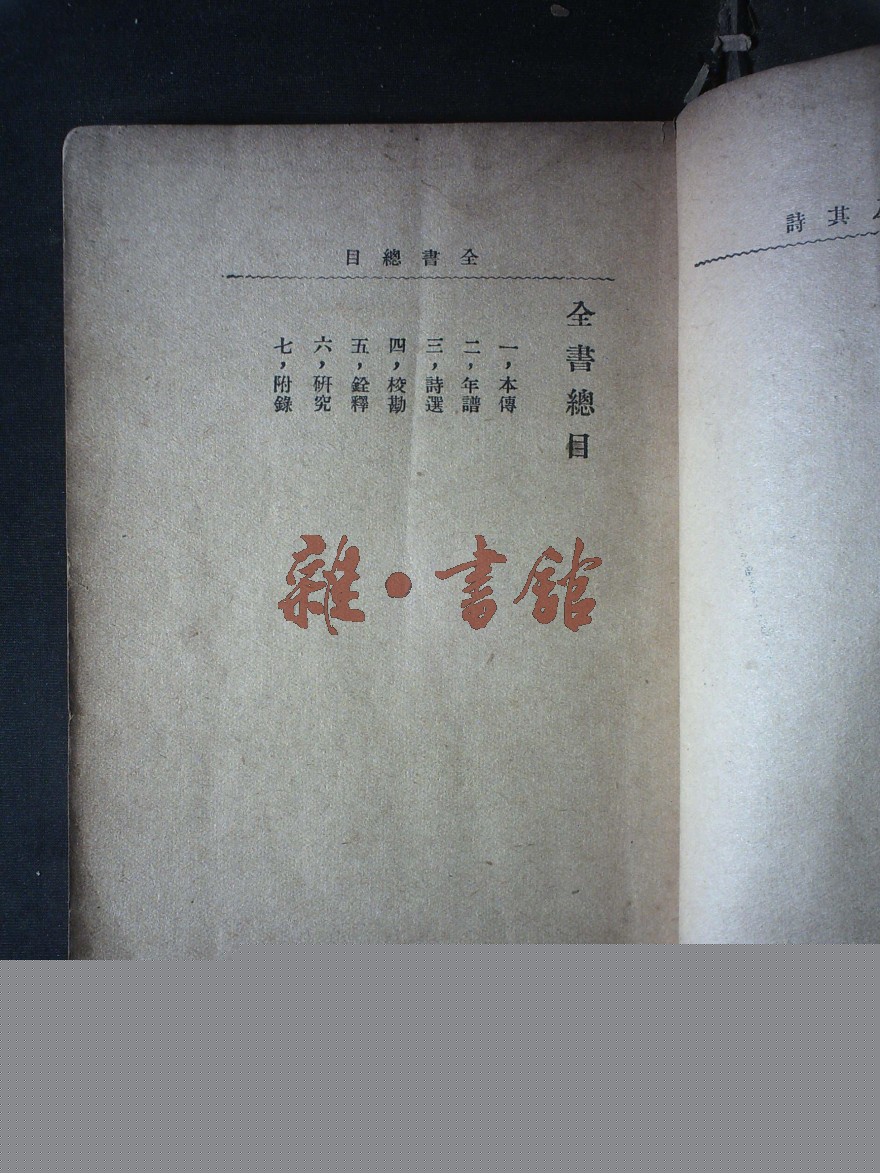 全書總目
全書總目
一，本傳
二，年譜
三，詩選
四，校勘
五，銓釋
六，研究
七，附錄
雜•書館
其詩